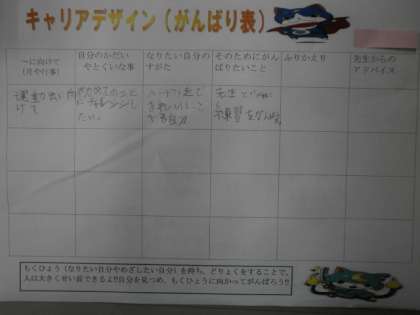 キャリアデザイン（がんばり表）
～に向けて
（月や行事）
自分のかだい
やとくいな事
なりたい自分の
すがた
そのためにがん
ばりたいこと
ふりかえり
先生からの
アドバイス
運動会に向
けて
たい。
自分
先生と
練習をがんばる
もくひょう（なりたい自分やめざしたい自分）を持ち、どりょくをすることで、
人は大きくせい長できるよ!!自分を見つめ、もくひょうに向かってがんばろう!!